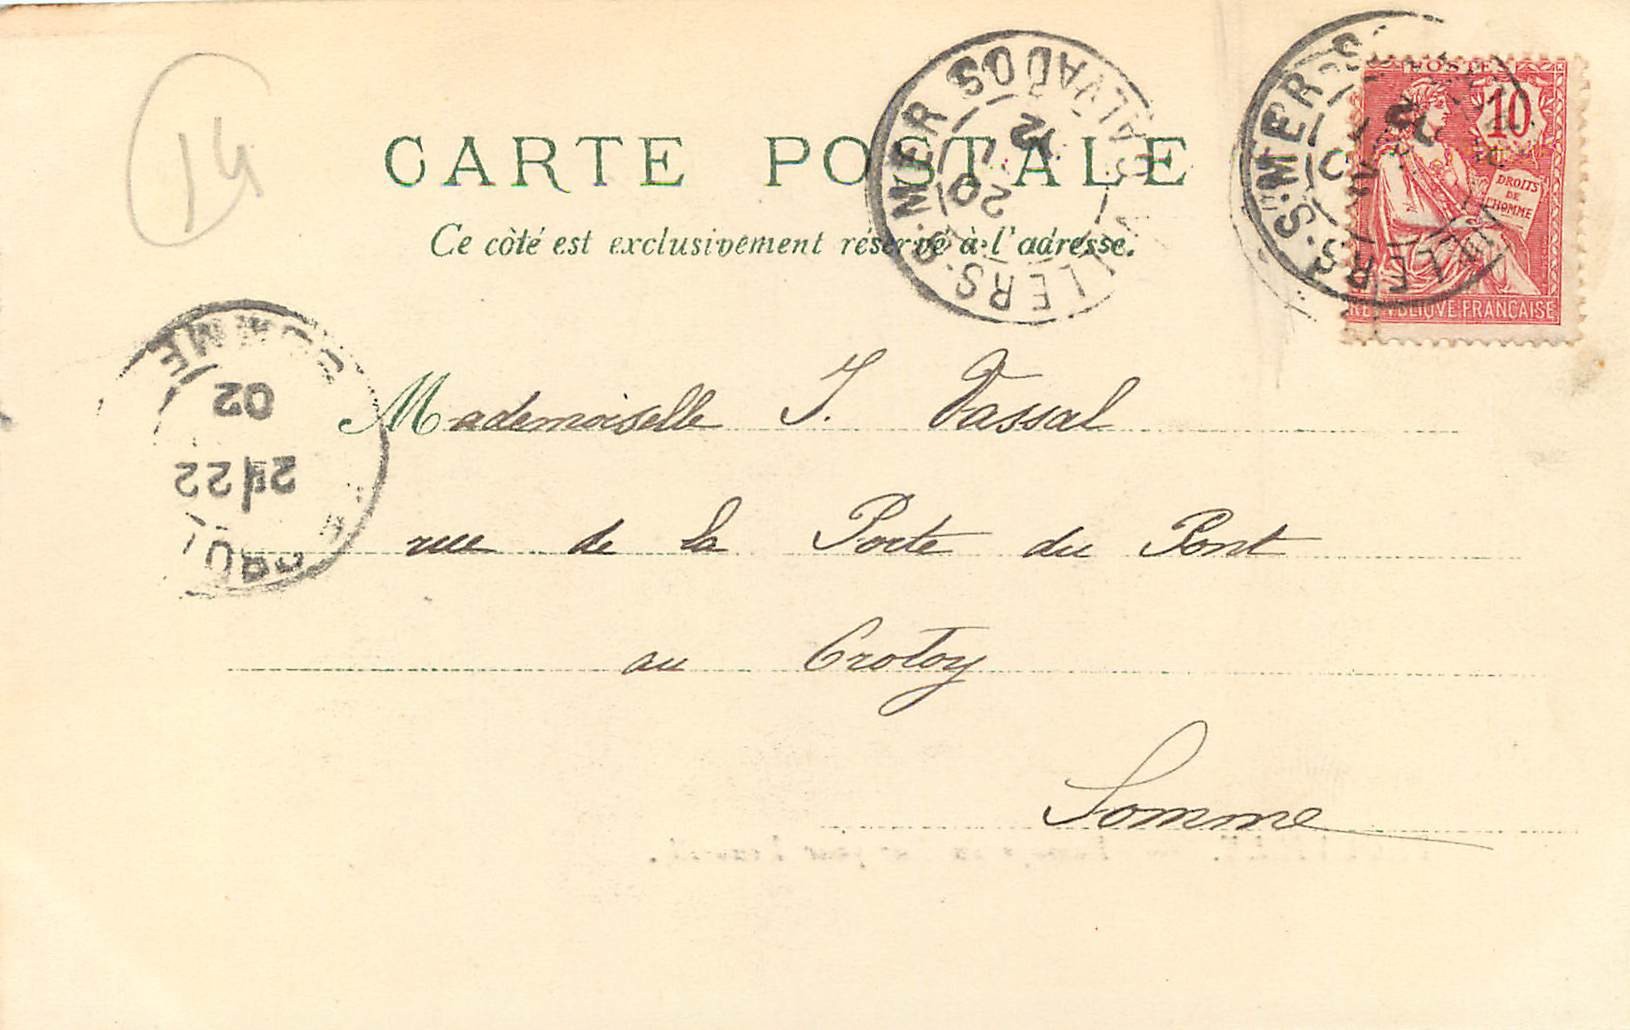 14
CARTE POSTALE
Ce côté est exclusivement réservé à l'adresse.
S. MER CALVADOS
20
02
S. MER
POSTES
10
DROITS
DE
L'HOMME
REPUBLIQUE FRANÇAISE
SOMME
02
22
Mademoiselle J. Vassal
rue de la Porte du Pont
au Crotoy
Somme